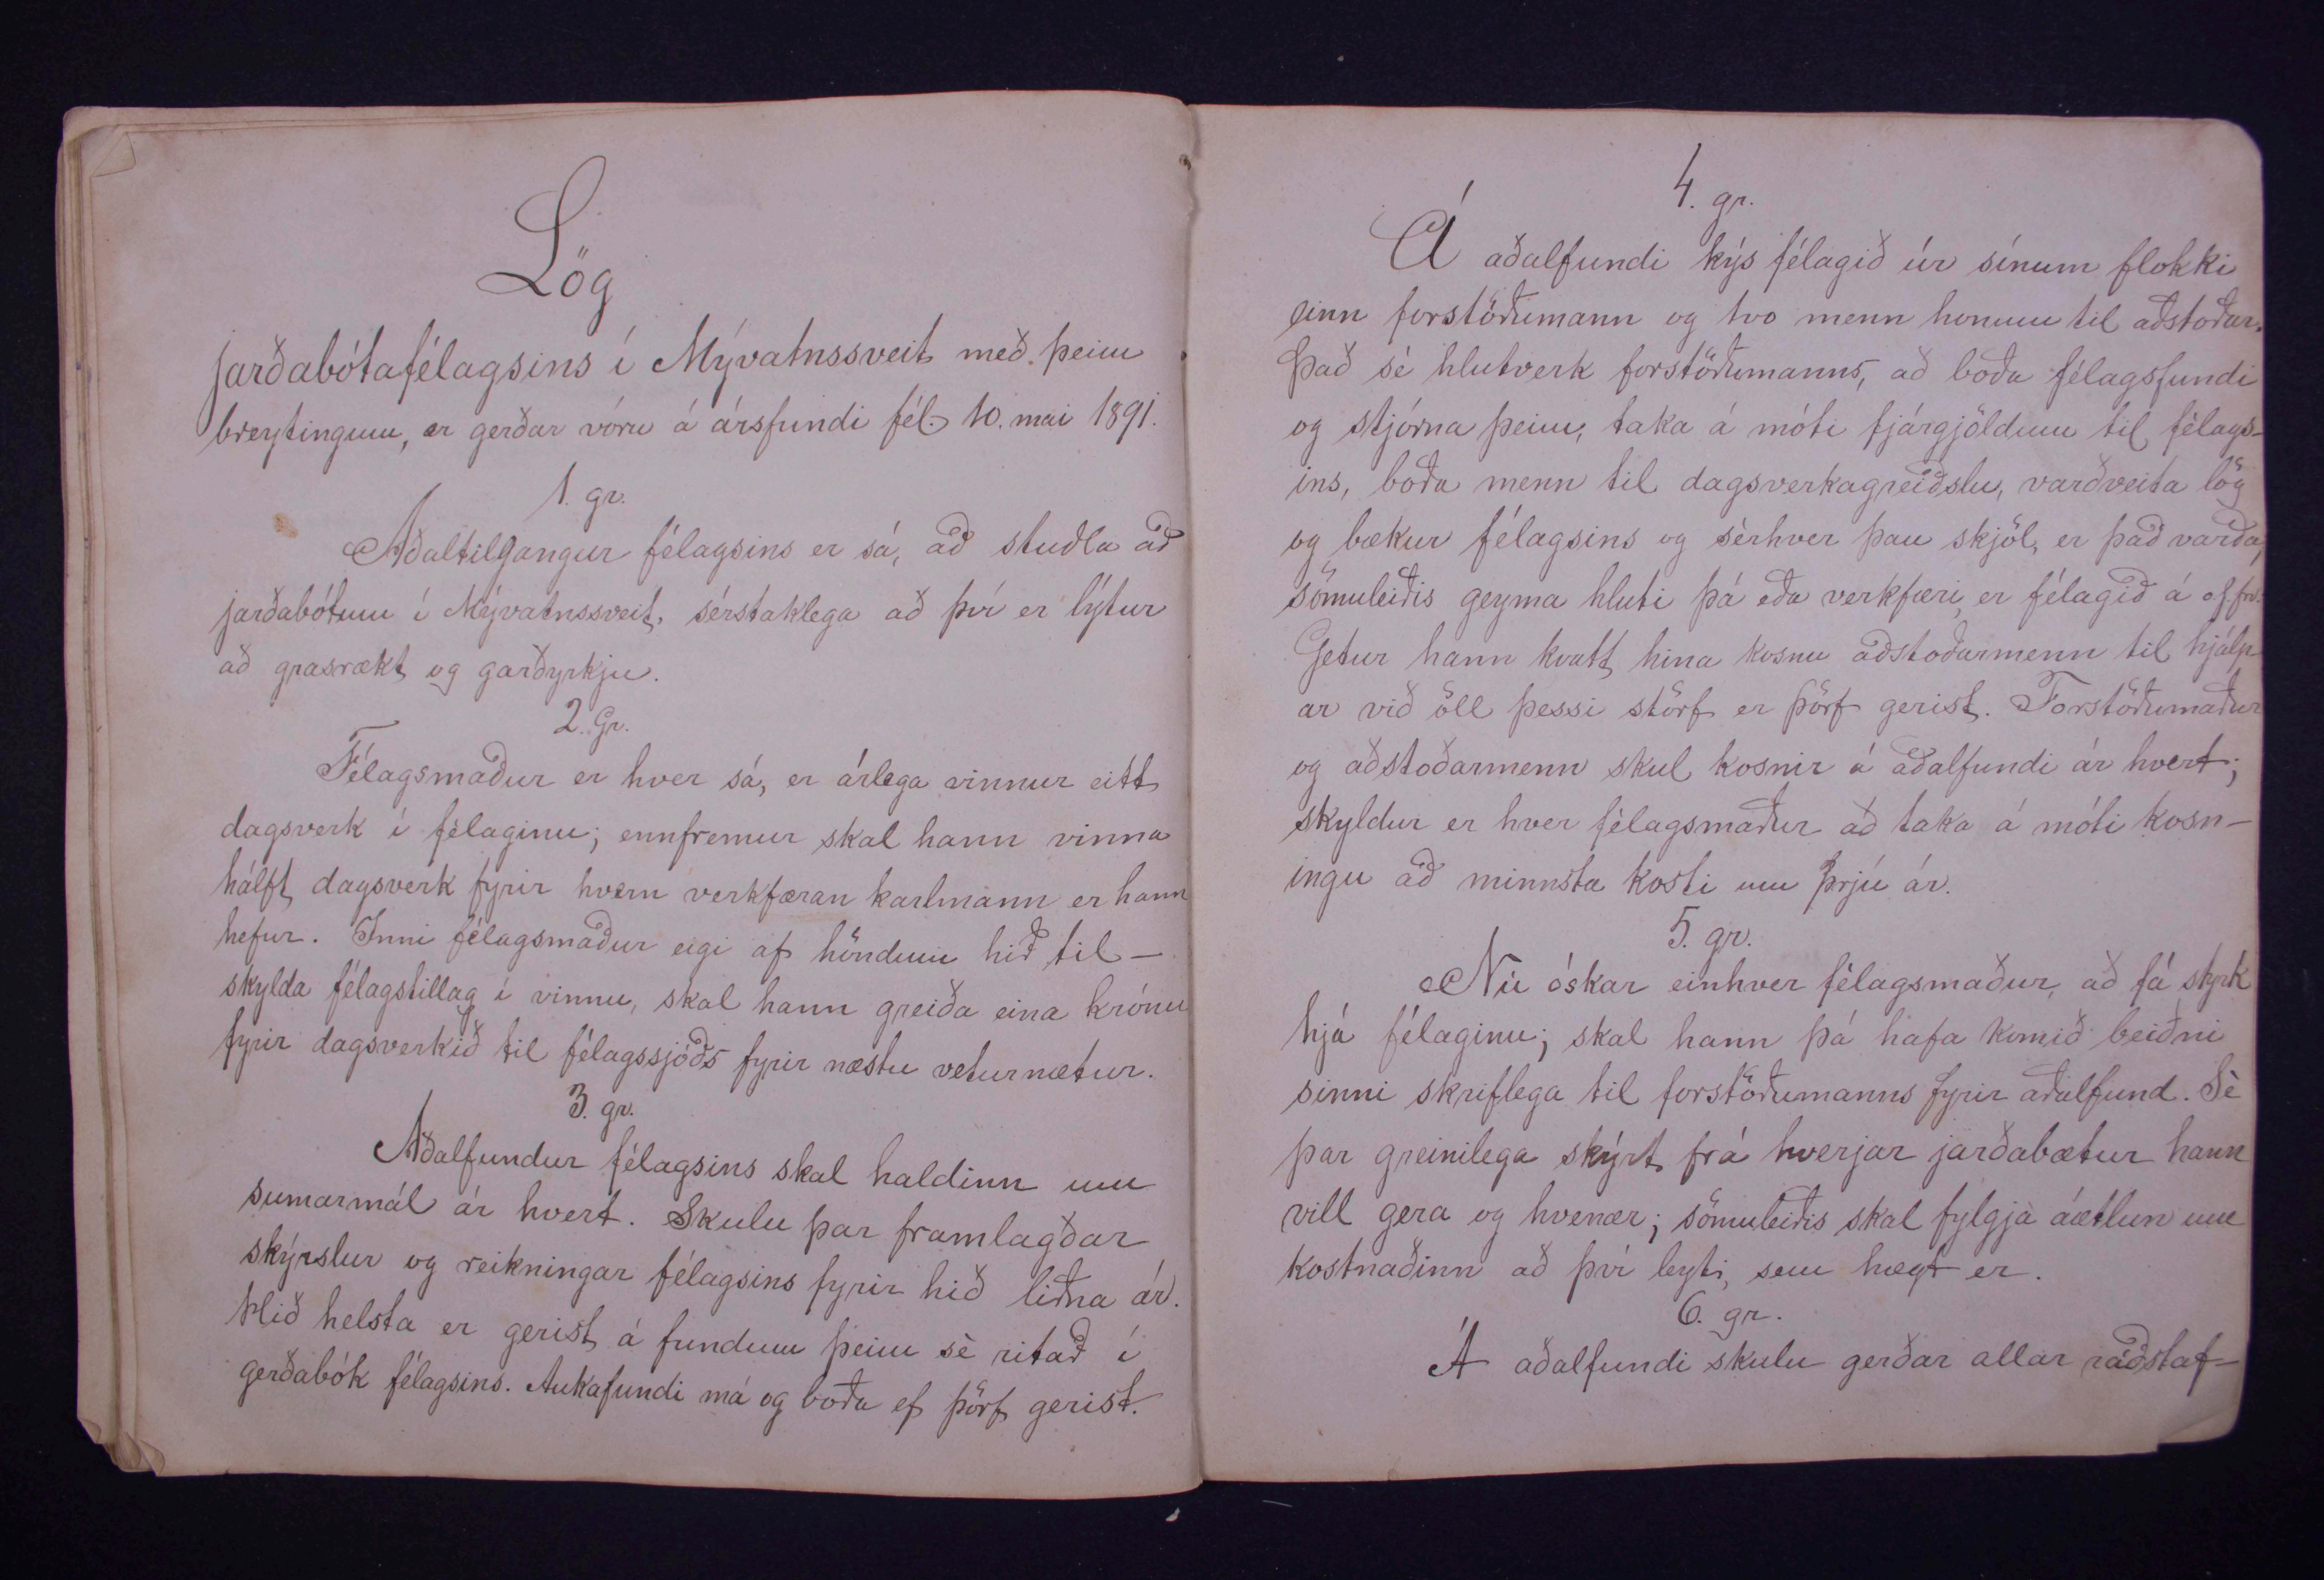 Lög
jarðabótafélagsins í Mývatnssveit með þeim
breytingum, er gerðar vóru á ársfundi fél. 10. mai 1891.
1. gr.
Aðaltilgangur félagsins er sá, að stuðla að
jarðabótum í Mývatnssveit, sérstaklega að því er lýtur
að grasrækt og garðyrkju.
2. Gr.
Félagsmaður er hver sá, er árlega vinnur eitt
dagsverk í félaginu; ennfremur skal hann vinna
hálft dagsverk fyrir hvern verkfæran karlmann er hann
hefur. Inni félagsmaður eigi af höndum hið til-
skylda félagstillag í vinnu, skal hann greiða eina krónu
fyrir dagsverkið til félagssjóðs fyrir næstu veturnætur.
3. gr.
Aðalfundur félagsins skal haldinn um
sumarmál ár hvert. Skulu þar framlagðar
skýrslur og reikningar félagsins fyrir hið liðna ár.
Hið helsta er gerist á fundum þeim sè ritað í
gerðabók félagsins. Aukafundi má og boða ef þörf gerist.
4. gr.
Á aðalfundi kýs félagið úr sínum flokki
einn forstöðumann og tvo menn honum til aðstoðar.
Það sè hlutverk forstöðumanns, að boða félagsfundi
og stjórna þeim, taka á móti fjárgjöldum til félags-
ins, boða menn til dagsverkagreiðslu, varðveita lög
og bækur félagsins og sèrhver þau skjöl, er það varða,
sömuleiðis geyma hluti þá eða verkfæri er félagið á of. frv.
Getur hann kvatt hina kosnu aðstoðarmenn til hjálp
ar við öll þessi störf er þörf gerist. Forstöðumaður
og aðstoðarmenn skul kosnir á aðalfundi ár hvert;
skyldur er hver félagsmaður að taka á móti kosn-
ingu að minnsta kosti um þrjú ár.
5. gr.
Nú óskar einhver félagsmaður, að fá styrk
hjá félaginu; skal hann þá hafa komið beiðni
sinni skriflega til forstöðumanns fyrir aðalfund. Sè
þar greinilega skýrt frá hverjar jarðabætur hann
vill gera og hvenær; sömuleiðis skal fylgja áætlun um
kostnaðinn að því leyti, sem hægt er.
6. gr.
Á aðalfundi skulu gerðar allar ráðstaf-